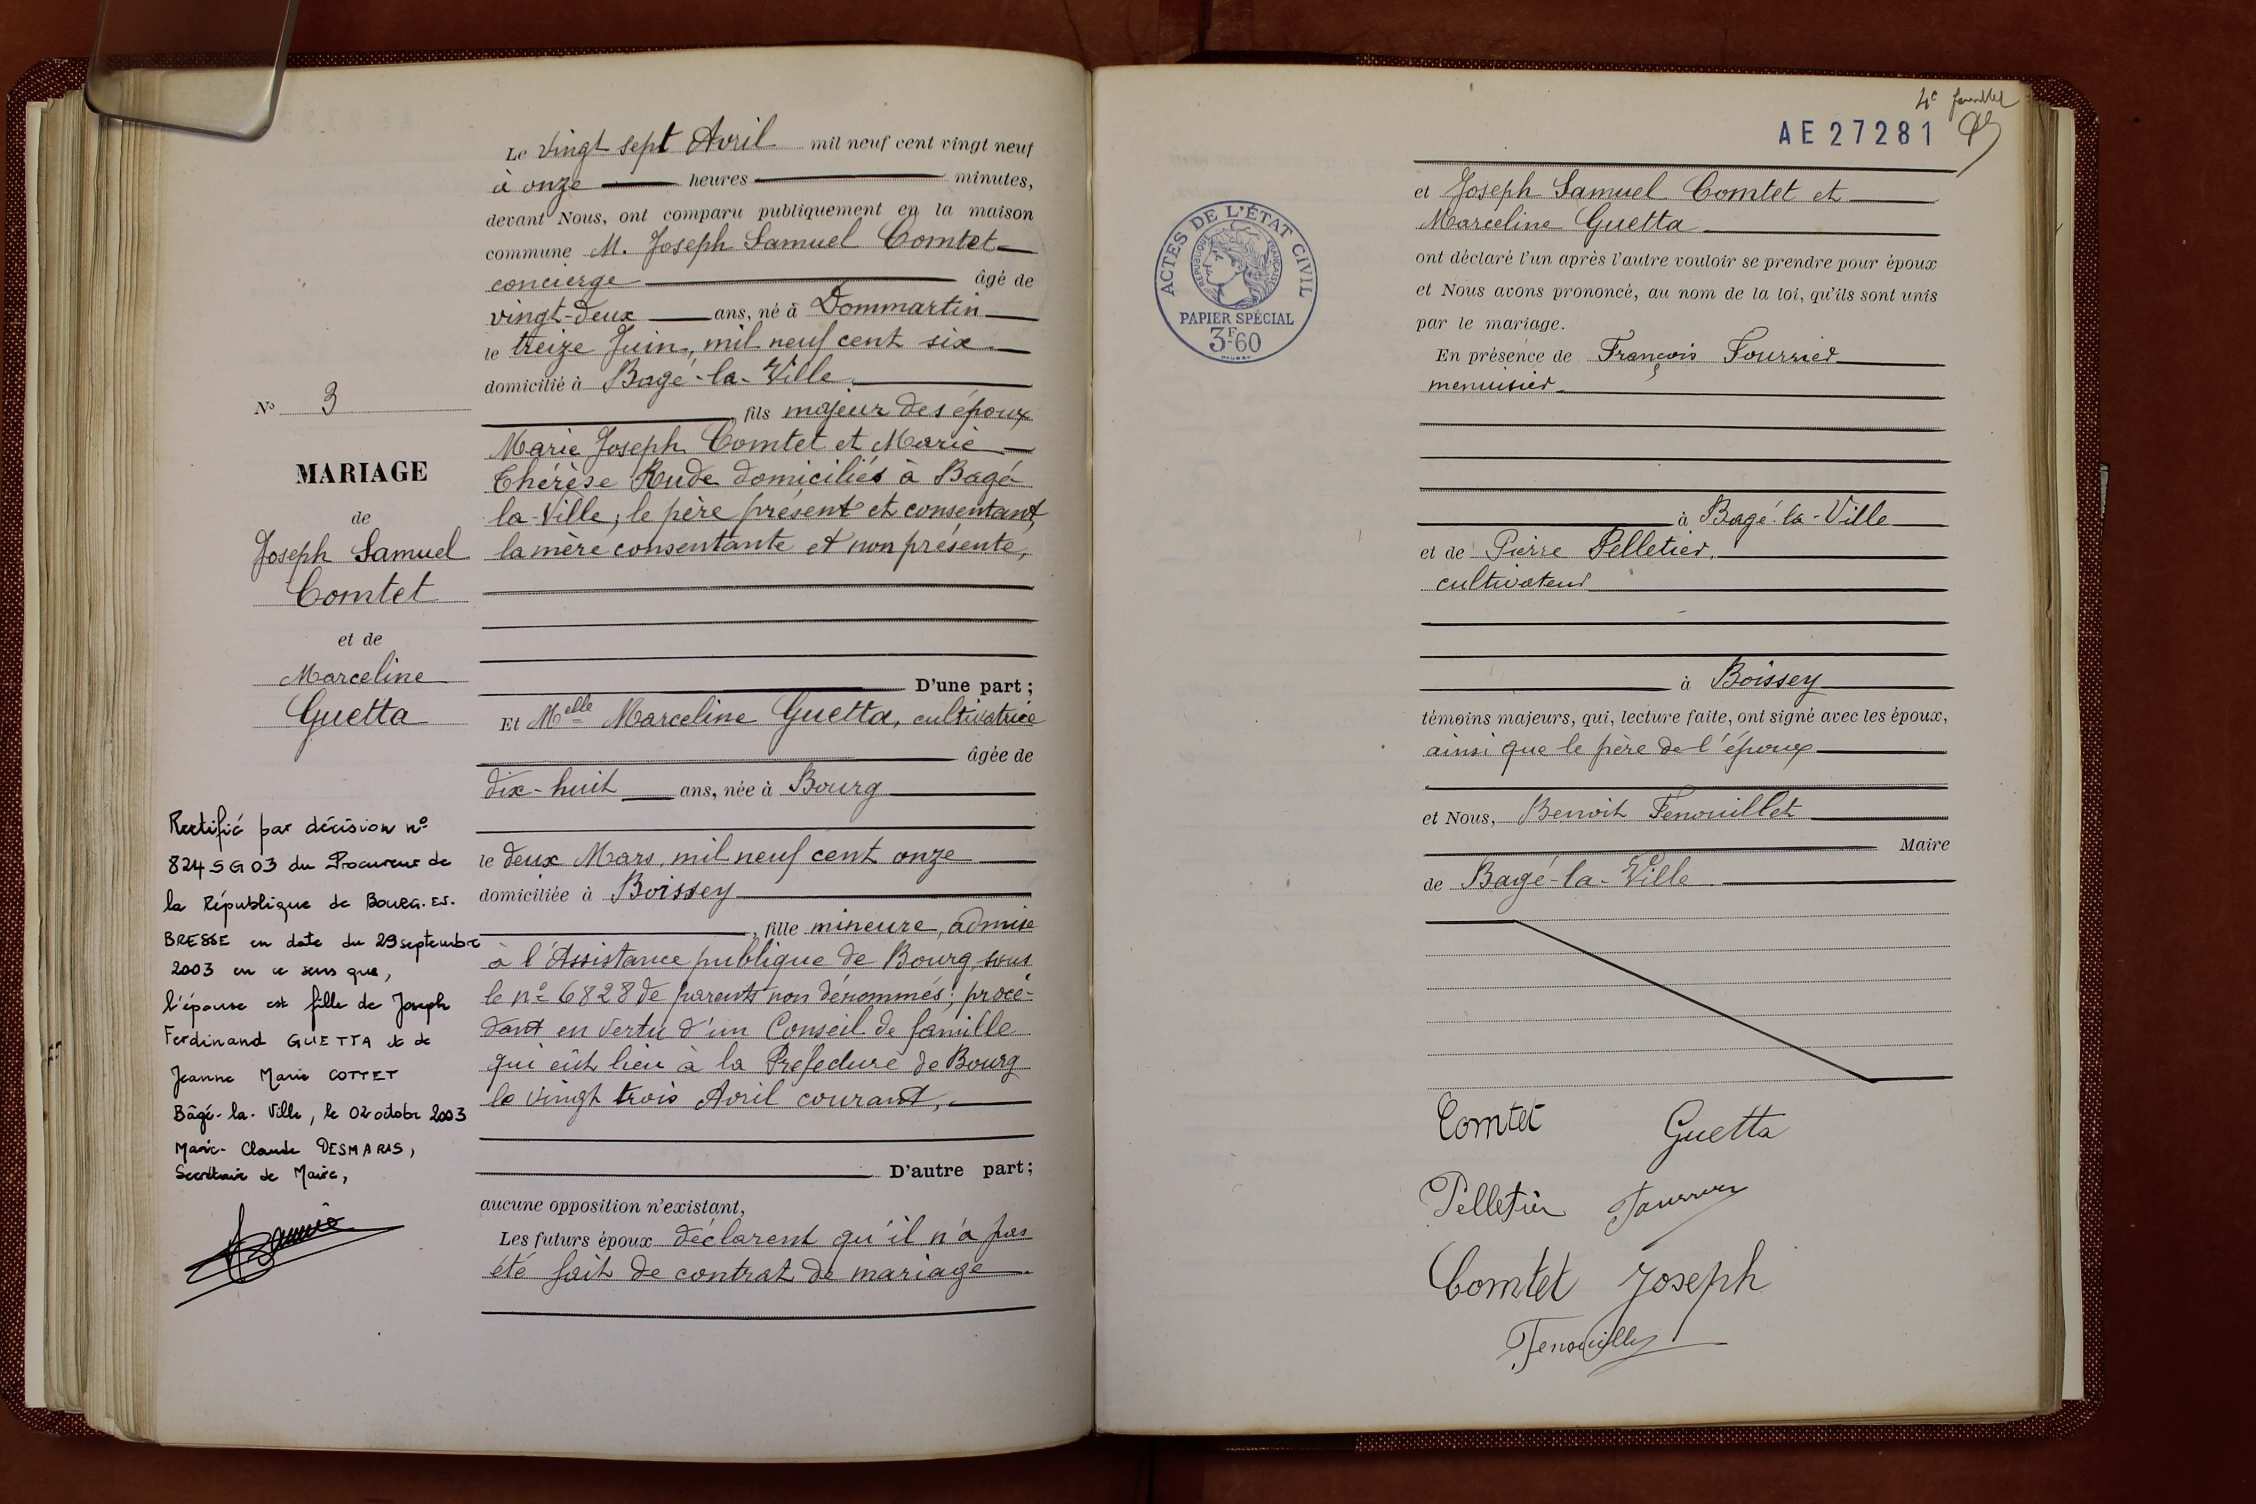 Le vingt sept Avril mil neuf cent vingt neuf
à onze heures minutes,
devant Nous, ont comparu publiquement en la maison
commune M. Joseph Samuel Comtet
concierge âgé de
vingt-deux ans, né à Dommartin
le treize Juin, mil neuf cent six
domicilié à Bagé-la-Ville,
fils majeur des époux
Marie Joseph Comtet et Marie
Thérèse Rude domiciliés à Bagé
la-Ville, le père présent et consentant,
la mère consentante et non présente,
D'une part ;
Et Melle Marceline Guetta, cultivatrice
âgée de
dix-huit ans, née à Bourg
le deux Mars, mil neuf cent onze
domiciliée à Boissey
, fille mineure, admise
à l'Assistance publique de Bourg, sous
le no 6828 de parents non dénommés; procé-
dant en vertu d'un Conseil de famille
qui eût lieu à la Prefecture de Bourg
le vingt trois Avril courant,
D'autre part ;
aucune opposition n'existant,
Les futurs époux déclarent qu'il n'a pas
été fait de contrat de mariage
No 3
MARIAGE
de
Joseph Samuel
Comtet
et de
Marceline
Guetta
Rectifié par décision no
824 SG 03 du Procureur de
la République de BOURG.EN.
BRESSE en date du 29 septembre
2003 en ce sens que,
l'épouse est fille de Joseph
Ferdinand GUETTA et de
Jeanne Marie COTTET
Bâgé-la-Ville, le 02 octobre 2003
Marie-Claude DESMARIS,
Secrétaire de Mairie,
4e feuillet
AE27281
ACTES DE L'ÉTAT CIVIL
RÉPUBLIQUE FRANÇAISE
PAPIER SPÉCIAL
3F60
et Joseph Samuel Comtet et
Marceline Guetta
ont déclaré l'un après l'autre vouloir se prendre pour époux
et Nous avons prononcé, au nom de la loi, qu'ils sont unis
par le mariage.
En présence de François Fourrier
menuisier
à Bagé-la-Ville
et de Pierre Pelletier,
cultivateur
à Boissey
témoins majeurs, qui, lecture faite, ont signé avec les époux,
ainsi que le père de l'époux
et Nous, Benoit Fenouillet
Maire
de Bagé-la-Ville
Comtet Guetta
Pelletier Fourrier
Comtet Joseph
Fenouillet